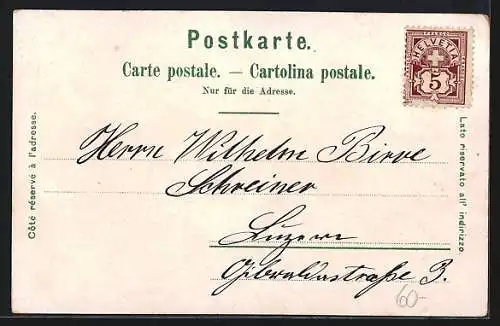 Postkarte.
Carte postale. — Cartolina postale.
Nur für die Adresse.
HELVETIA
5
Côté réservé à l'adresse.
Lato riservato all' indirizzo.
Herrn Wilhelm
Schreiner
Luzern
3.
60-